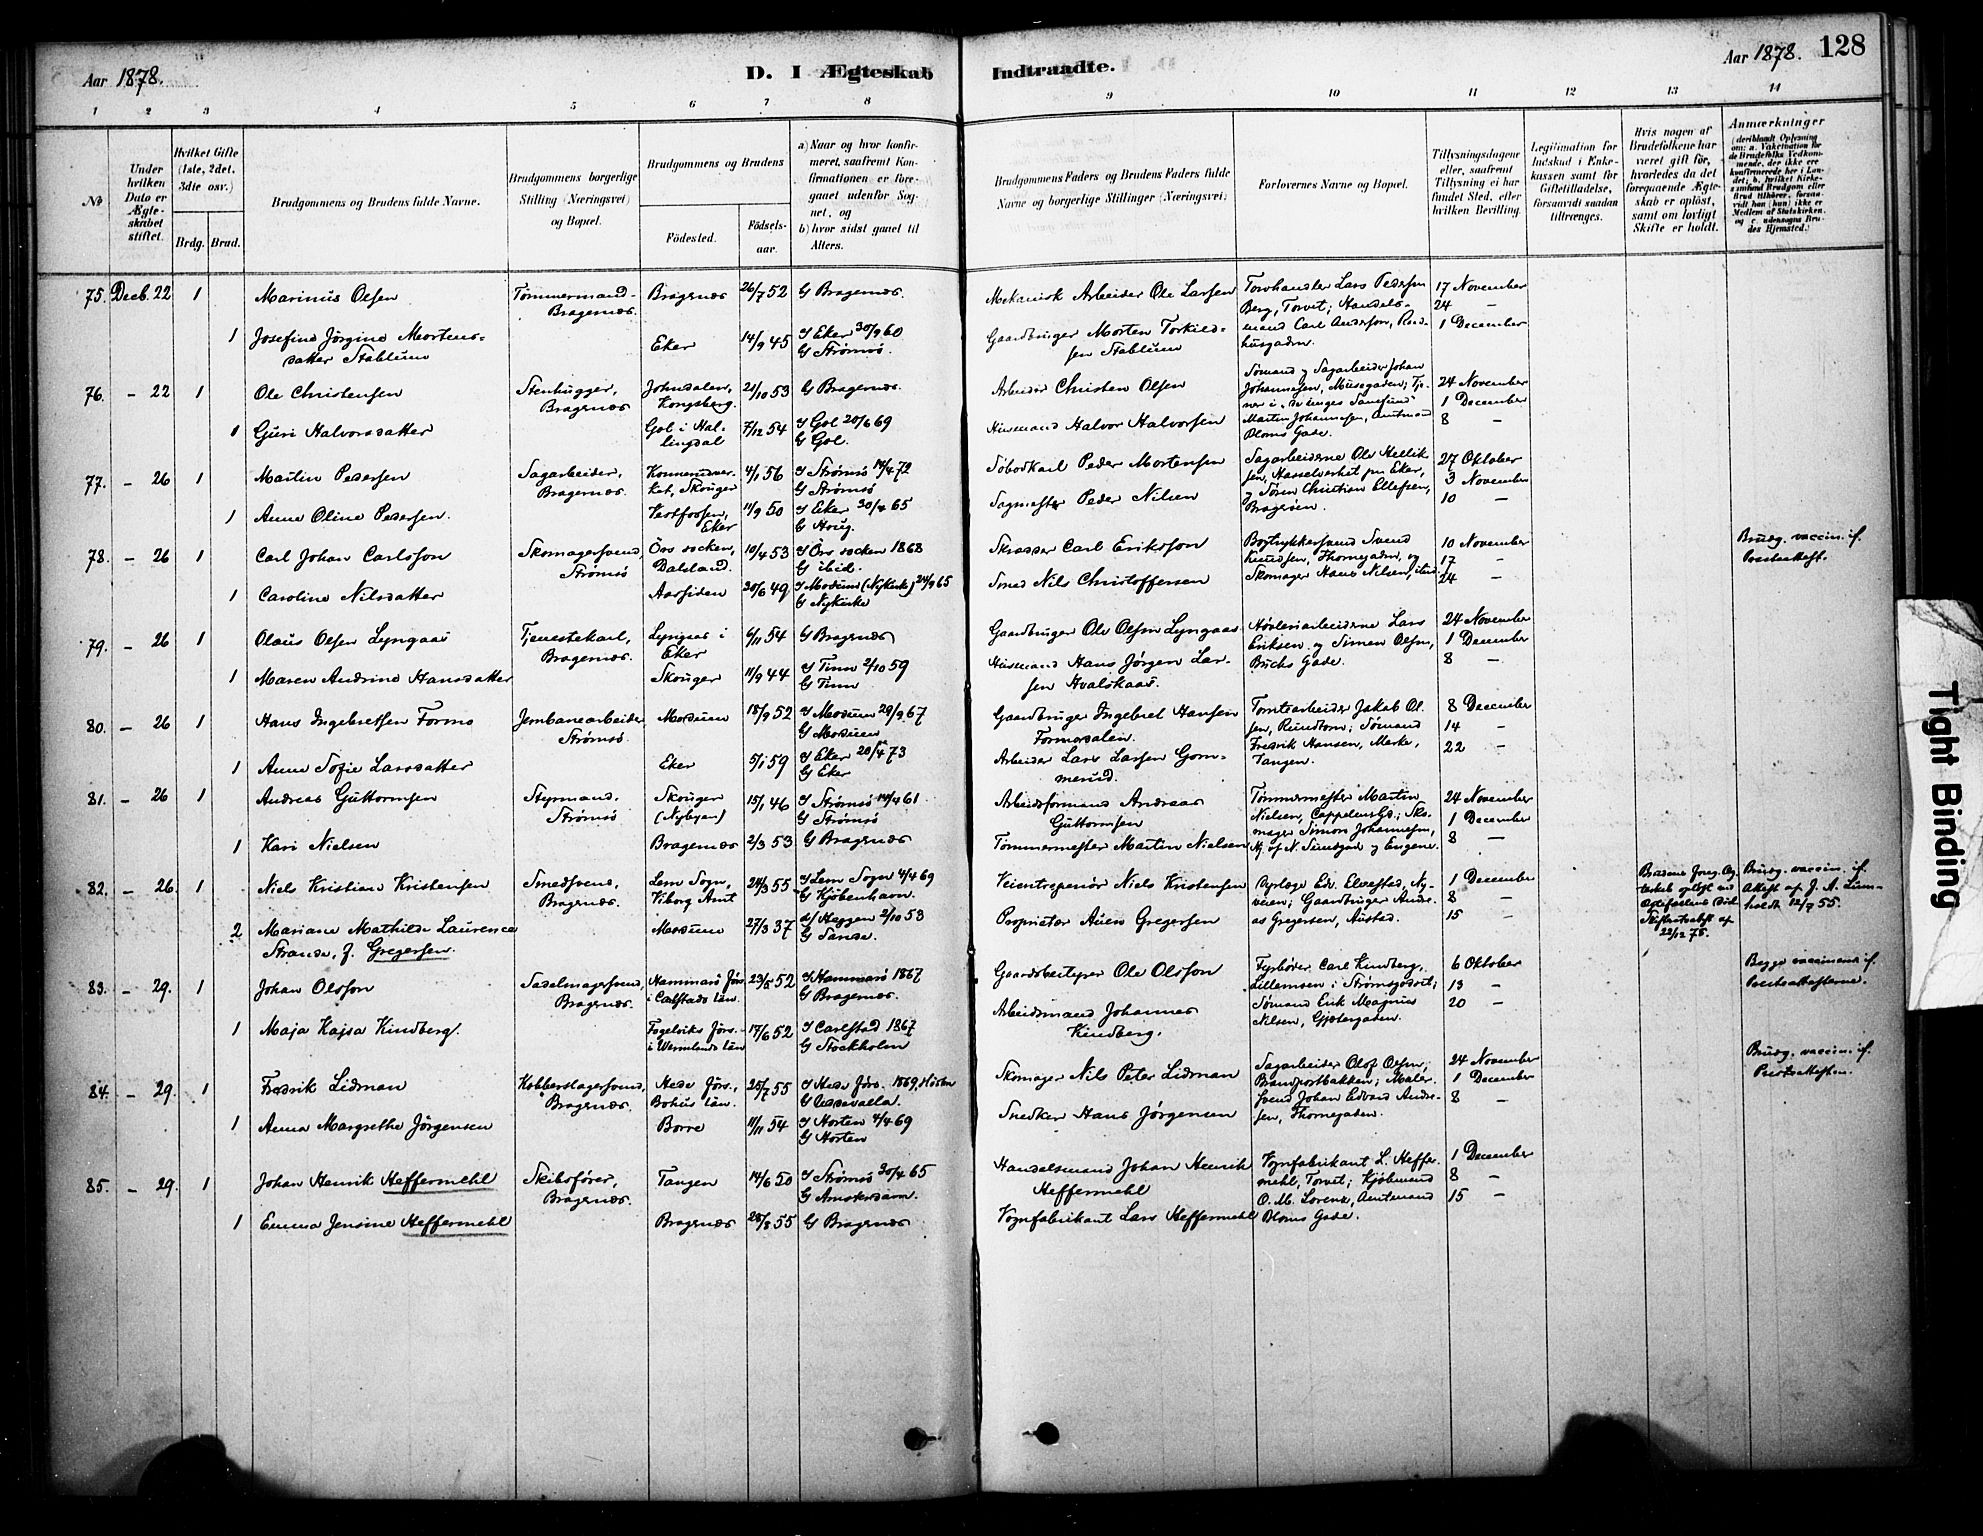 Aar 1878.
D. I Ægteskab
Indtraadte.
Aar 1878.
128
1 2 3 4 5 6 7 8 9 10 11 12 13 14
No
Under hvilken Dato er Ægteskabet stiftet.
Hvilket Gifte (1ste, 2det, 3die osv.)
Brdg. Brud.
Brudgommens og Brudens fulde Navne.
Brudgommens borgerlige Stilling (Næringsvei) og Bopæl.
Brudgommens og Brudens
Födested.
Födselsaar.
a) Naar og hvor konfirmeret, saafremt Konfirmationen er foregaaet udenfor Sognet, og
b) hvor sidst gaaet til Alters.
Brudgommens Faders og Brudens Faders fulde Navne og borgerlige Stillinger (Næringsvei)
Forlovernes Navne og Bopæl.
Tillysningsdagene eller, saafremt Tillysning ei har fundet Sted, efter hvilken Bevilling.
Legitimation for Indskud i Enkekassen samt for Giftetilladelse, forsaavidt saadan tiltrænges.
Hvis nogen af Brudefolkene har været gift för, hvorledes da det foregaaende Ægteskab er oplöst, samt om lovligt Skifte er holdt.
Anmærkninger
75. Decb. 22 1 Marinus Olsen Tømmermand Bragernæs. Bragernæs 26/7 52 G Bragernæs. Mekanisk Arbeider Ole Larsen Torvhandler Lars Pedersen Berg, Torvet; Handelsmand Carl Andersen, Raadhusgaden. 17 November 24 – 1 December
1 Josefine Jørgine Mortensdatter Stablum Eker 14/9 45 I Eker 30/9 60 G Strømsø. Gaardbruger Morten Torkildsen Stablum
76. – 22 1 Ole Christensen Stenhugger, Bragernæs Johnsdalen, Kongsberg. 21/10 53 G Bragernæs. Arbeider Christen Olsen Sømand og Sagarbeider Johan Johannesen, Martin Johannesen, Amtmand Bloms Gade. 24 November 1 December 8 –
1 Guri Halvorsdatter Gol i Hallingdal 7/12 54 I Gol 20/6 69 G Gol. Husmand Halvor Halvorsen
77. – 26 1 Martin Pedersen Sagarbeider, Bragernæs. Skouger 4/1 56 I Strømsø 14/4 72 G Strømsø Peder Mortensen Sagarbeiderne Ole Hellik­sen, Hasselverket pr Eker, og Søren Christian Ellefsen, Bragerøen. 27 Oktober 3 November 10 –
1 Anne Oline Pedersen. Vestfossen, Eker 11/9 50 I Eker 30/4 65 G Houg. Sagmester Peder Nilsen
78. – 26 1 Carl Johan Carlsson Skomagersvend, Strømsø Örs socken, Dalsland. 10/4 53 I Örs socken 1868 G ibid. Skræder Carl Eriksson Bogtrykkersvend Svend Knudsen, Thornegaden, og Skomager Hans Nilsen, 10 November 17 – 24 – Brudg. vaccin. if. Presteattest.
1 Caroline Nilsdatter Aassiden 20/6 49 I Modum (Nykirke) 24/9 65 G Nykirke Smed Nils Christoffersen
79. – 26 1 Olaus Olsen Lyngaas Tjenestekarl, Bragernæs. Lyngaas i Eker 6/11 54 G Bragernæs Gaardbruger Ole Olsen Lyngaas Høvleriarbeiderne Lars Eriksen og Simen Olsen, Buchs Gade. 24 November 1 December 8 –
1 Maren Andrine Hansdatter Skouger 11/9 44 I Tinn 2/10 59 G Tinn Husmand Hans Jørgen Larsen Hvalskaas.
80. – 26 1 Hans Ingebretsen Formo Jernbanearbeider Strømsø. Modum 18/9 52 I Modum 29/9 67 G Modum Gaardbruger Ingebret Hansen Formodalen. Tomtearbeider Jakob Olsen, Rundtom; Sømand Fredrik Hansen, Merke, Tangen. 8 December 14 – 22 –
1 Anne Sofie Larsdatter Eker 5/1 59 I Eker 20/4 73 G Eker Arbeider Lars Larsen Gommerud.
81. – 26 1 Andreas Guttormsen Styrmand, Strømsø Skouger (Nybyen) 15/1 46 I Strømsø 14/4 61 G Strømsø Arbeidsformand Andreas Guttormsen Tømmermester Martin Nielsen, Cappelens Gd.; Skomager Simon Johannesen, 24 November 1 December 8 –
1 Kari Nielsen Bragernæs 2/3 53 G Bragernæs Tømmermester Martin Nielsen
82. – 26 1 Niels Kristian Kristensen Smedsvend, Bragernæs. Lem Sogn, Viborg Amt 24/3 55 I Lem Sogn 4/4 69 G Kjøbenhavn. Veientreprenør Niels Kristensen Dyrlæge Edv. Elvestad, Nyveien; Gaardbruger Andreas Gregersen, Austad. 1 December 8 – 15 – Brudg. vaccin. if. Attest af J. A. Lumholdt 12/7 55.
2 Mariane Mathilde Laurence Strande, f. Gregersen. Modum 27/3 37 a/ Heggen 2/10 53 G Sande. Proprietær Auen Gregersen
83. – 29. 1 Johan Olsson Sadelmagersvend, Bragernæs. Hammarö Förs. i Carlstads län. 23/5 52 I Hammarö 1867 G Bragernæs. Gaardsbestyrer Ole Olsson Fyrbøder Carl Kindberg, Lillemsen i Strømsgodset; Sømand Erik Magnus Nilsen, Gjetergaden. 6 Oktober 13 – 20 – Begge vaccinerede if. Presteattesterne.
1 Maja Kajsa Kindberg. Fogelviks Förs. i Wermlands län 17/6 52 I Carlstad 1867 G Stockholm Arbeidsmand Johannes Kindberg.
84. – 29. 1 Fredrik Lidman Kobberslagersvend, Bragernæs. Hede Förs., Bohus län. 25/7 55 I Hede Förs. 1869, Høsten G Uddevalla. Skomager Nils Peter Lidman Sagarbeider Olof Olsen, Brandpostbakken; Malersvend Johan Edvard Andresen, Thornegaden. 24 November 1 December 8 – Brudg. vaccin. if. Presteattesten.
1 Anna Margrethe Jörgensen Borre 11/11 54 I Horten 4/4 69 G Horten Snedker Hans Jørgensen
85. – 29. 1 Johan Henrik Heffermehl Skibsfører, Bragernæs. Tangen 14/6 50 I Strømsø 30/4 65 G Amsterdam. Handelsmand Johan Henrik Heffermehl Vognfabrikant L. Heffermehl, Torvet; Kjøbmand O. M. Lorenz, Amtmand Bloms Gade. 1 December 8 – 15 –
1 Emma Jensine Heffermehl Bragernæs 28/8 55 G Bragernæs Vognfabrikant Lars Heffermehl
Tight Binding